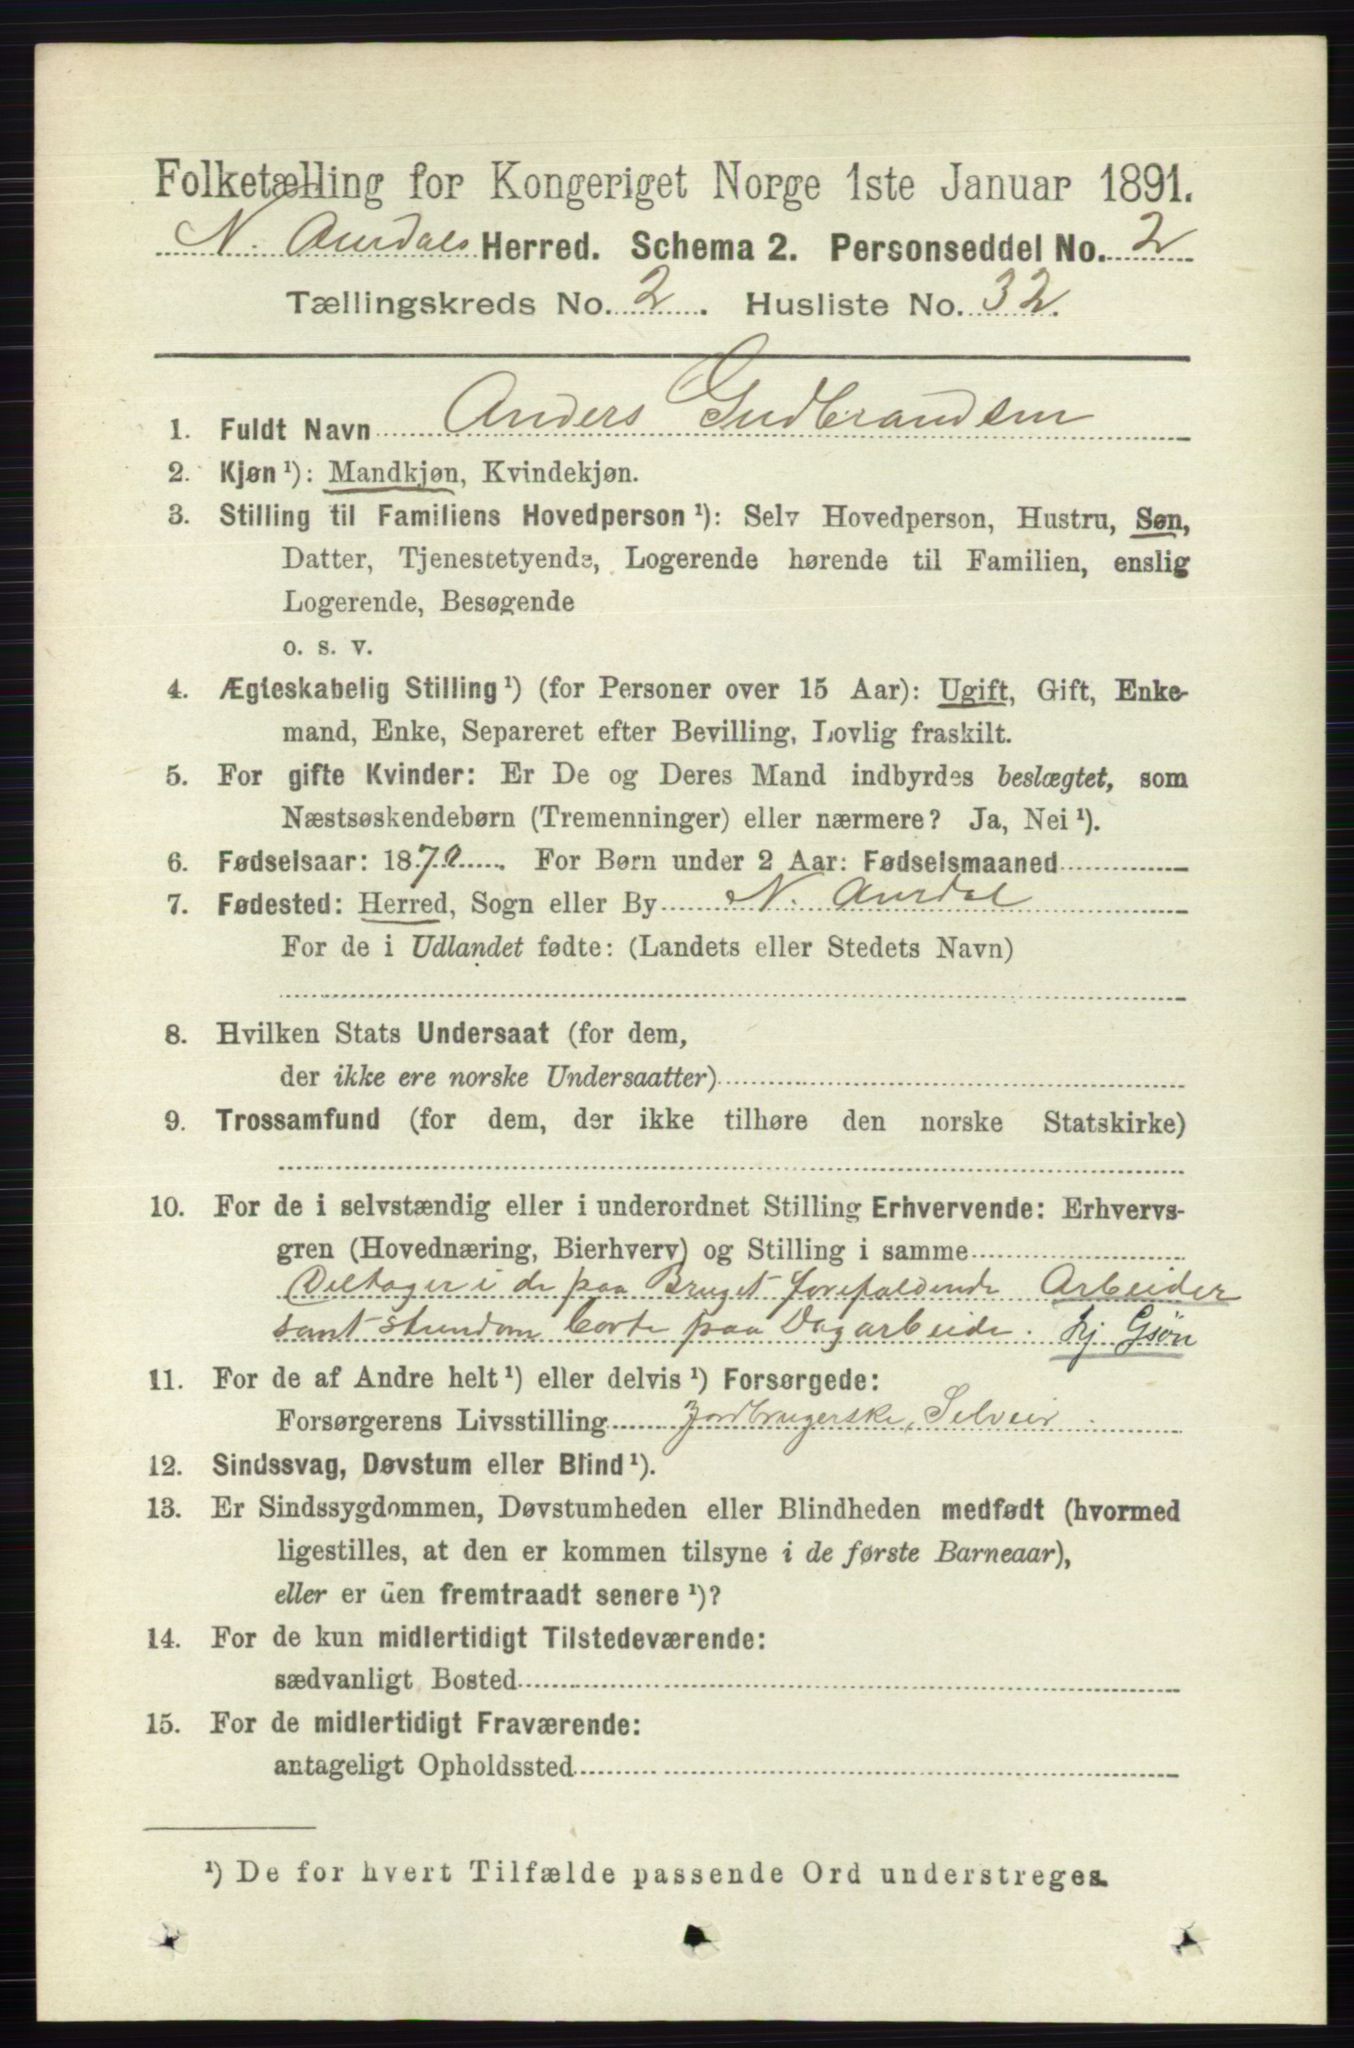 Folketælling for Kongeriget Norge 1ste Januar 1891.
N. Aurdals Herred. Schema 2. Personseddel No. 2
Tællingskreds No. 2. Husliste No. 32.
1. Fuldt Navn Anders Gudbrandsen
2. Kjøn ¹): Mandkjøn, Kvindekjøn.
3. Stilling til Familiens Hovedperson ¹): Selv Hovedperson, Hustru, Søn,
Datter, Tjenestetyende, Logerende hørende til Familien, enslig
Logerende, Besøgende
o. s. v.
4. Ægteskabelig Stilling ¹) (for Personer over 15 Aar): Ugift, Gift, Enke-
mand, Enke, Separeret efter Bevilling, Lovlig fraskilt.
5. For gifte Kvinder: Er De og Deres Mand indbyrdes beslægtet, som
Næstsøskendebørn (Tremenninger) eller nærmere? Ja, Nei ¹).
6. Fødselsaar: 1870. For Børn under 2 Aar: Fødselsmaaned
7. Fødested: Herred, Sogn eller By N. Aurdal
For de i Udlandet fødte: (Landets eller Stedets Navn)
8. Hvilken Stats Undersaat (for dem,
der ikke ere norske Undersaatter)
9. Trossamfund (for dem, der ikke tilhøre den norske Statskirke)
10. For de i selvstændig eller i underordnet Stilling Erhvervende: Erhvervs-
gren (Hovednæring, Bierhverv) og Stilling i samme
Deltager i de paa Bruget forefaldende Arbeider
samt stundom borte paa Dagarbeide. hj Gsøn
11. For de af Andre helt ¹) eller delvis ¹) Forsørgede:
Forsørgerens Livsstilling Jordbrugerske, Selveier
12. Sindssvag, Døvstum eller Blind ¹).
13. Er Sindssygdommen, Døvstumheden eller Blindheden medfødt (hvormed
ligestilles, at den er kommen tilsyne i de første Barneaar),
eller er den fremtraadt senere ¹)?
14. For de kun midlertidigt Tilstedeværende:
sædvanligt Bosted
15. For de midlertidigt Fraværende:
antageligt Opholdssted
¹) De for hvert Tilfælde passende Ord understreges.